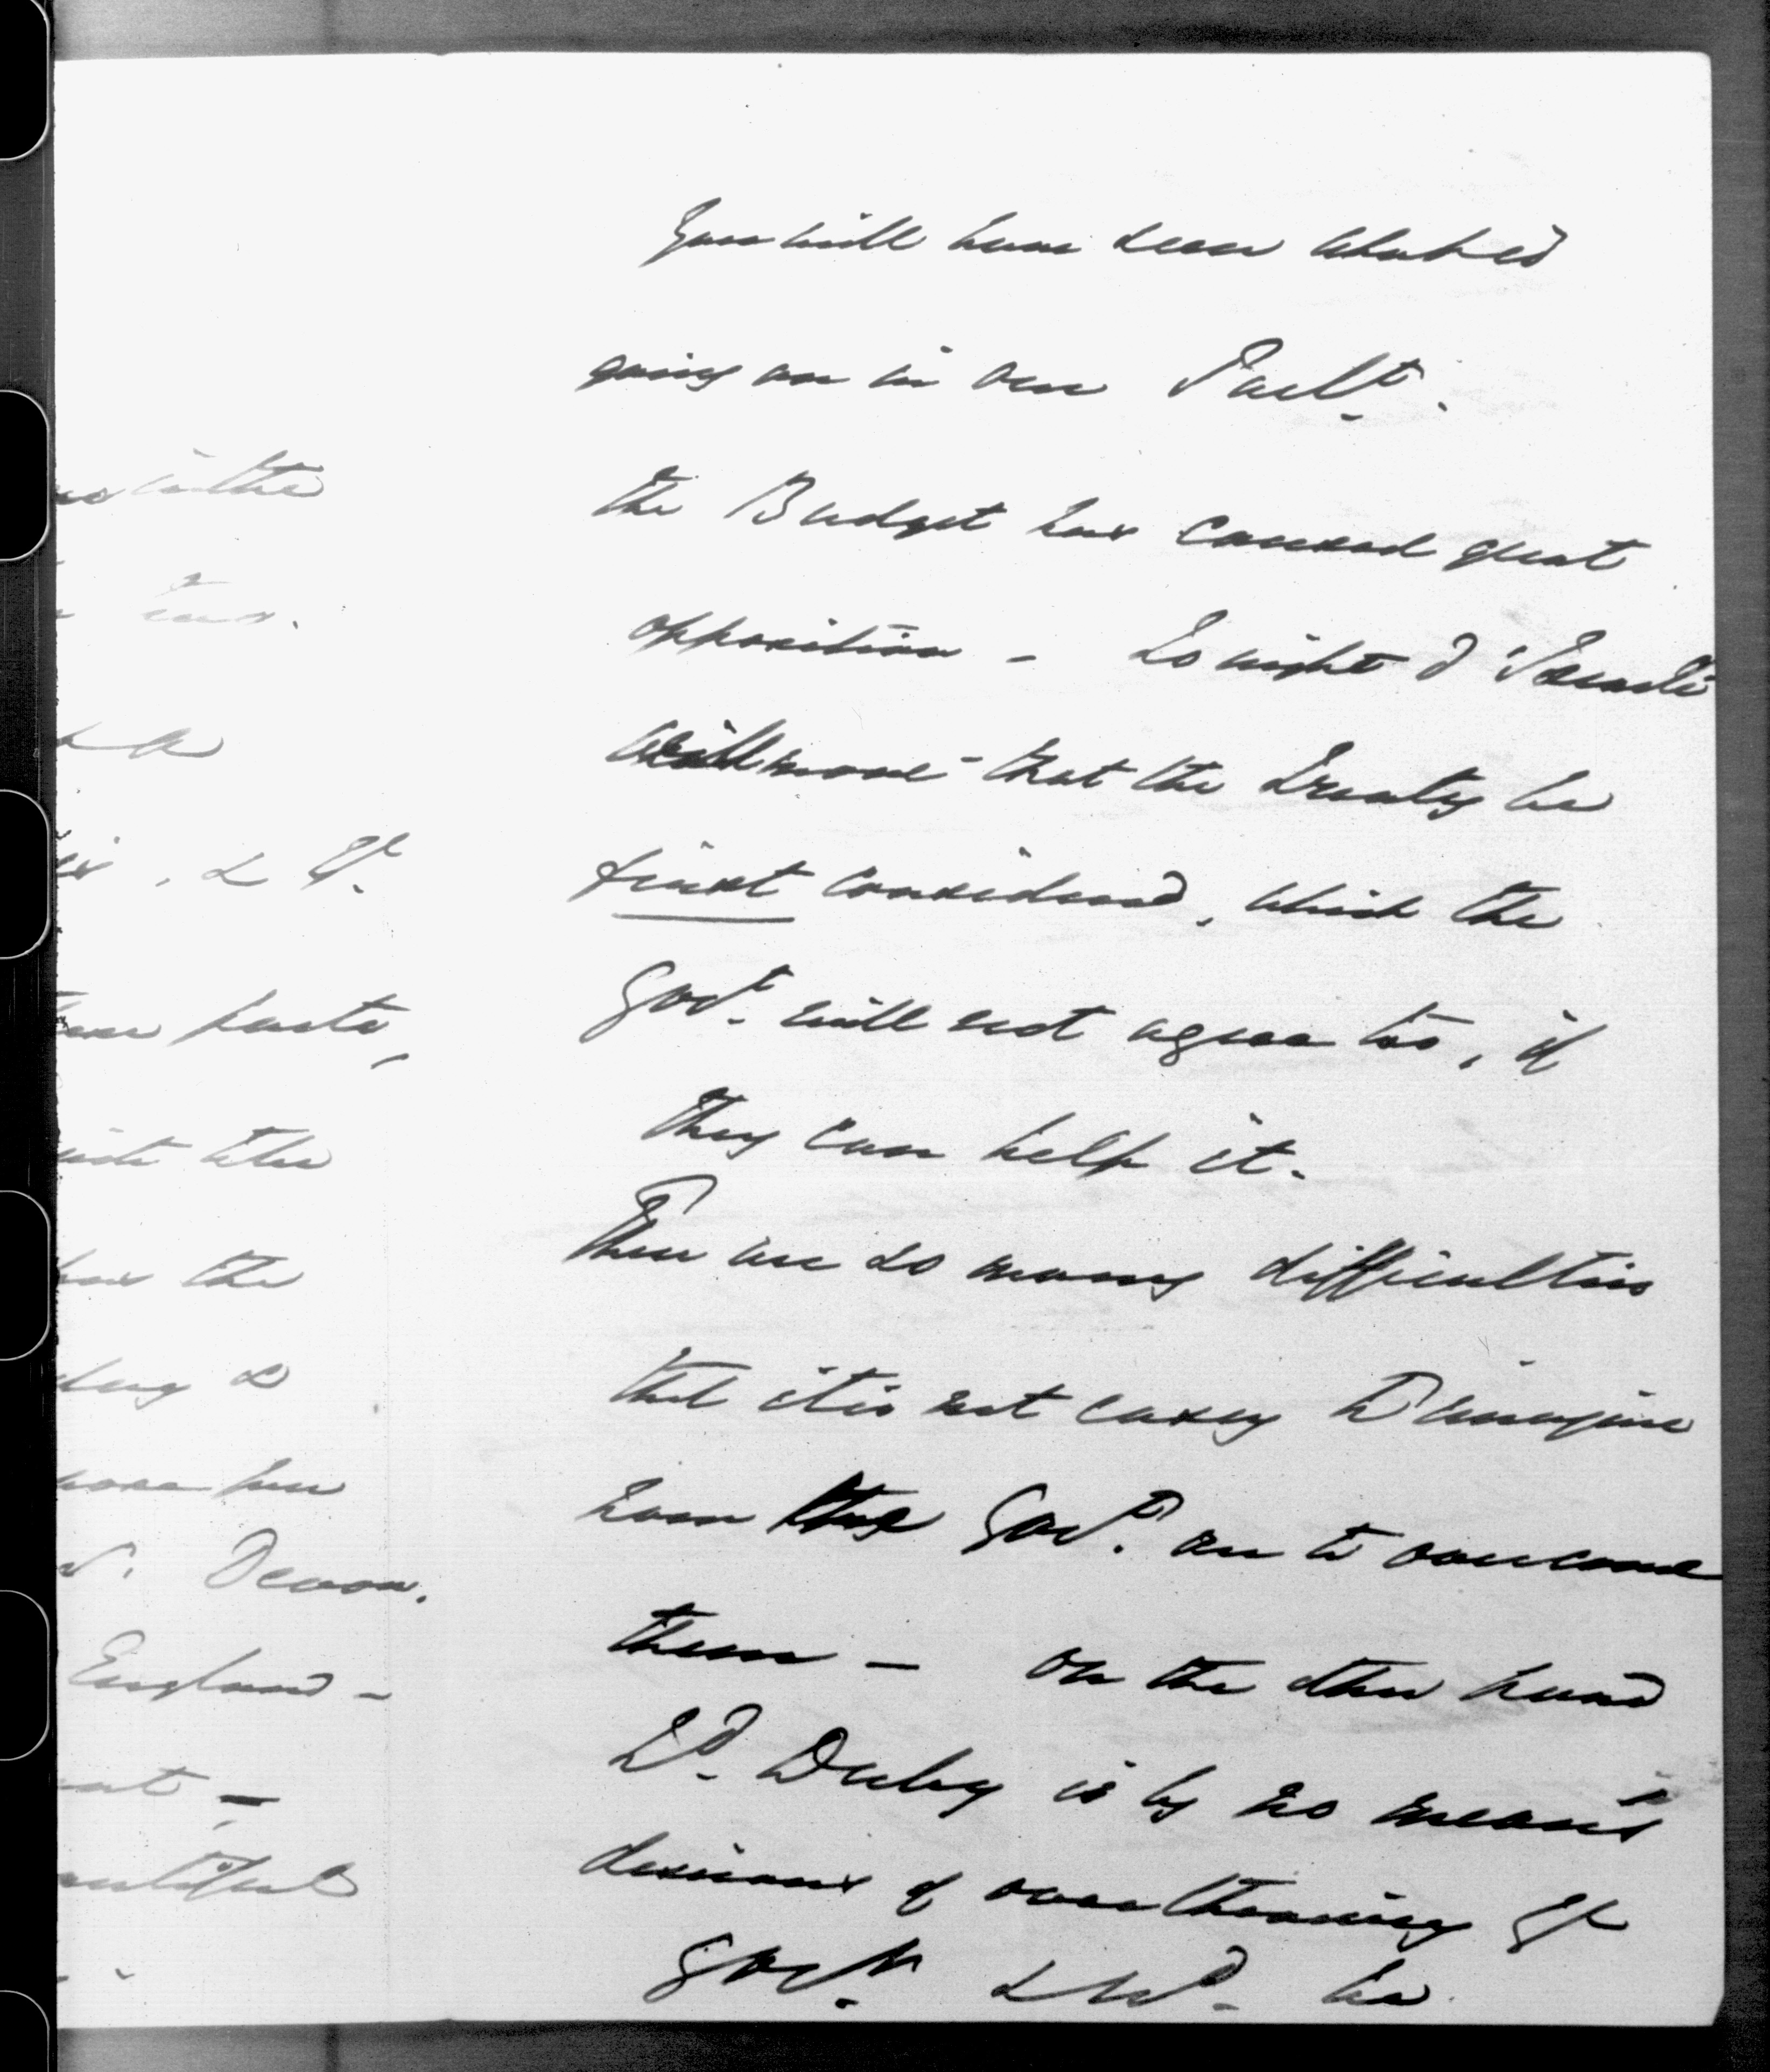 in the
&
parts,
the
&
Devon.
England -
You will have seen what is
going on in our Parlt.
the Budget has caused great
opposition - To night d'Israeli
will move that the Treaty be
first considered, which the
Govt. will not agree to, if
they can help it.
There are so many difficulties
that it is not easy to imagine
how the Govt. are to overcome
them - on the other hand
Ld. Derby is by no means
desirous of overthrowing ye
Govt. & wd. be